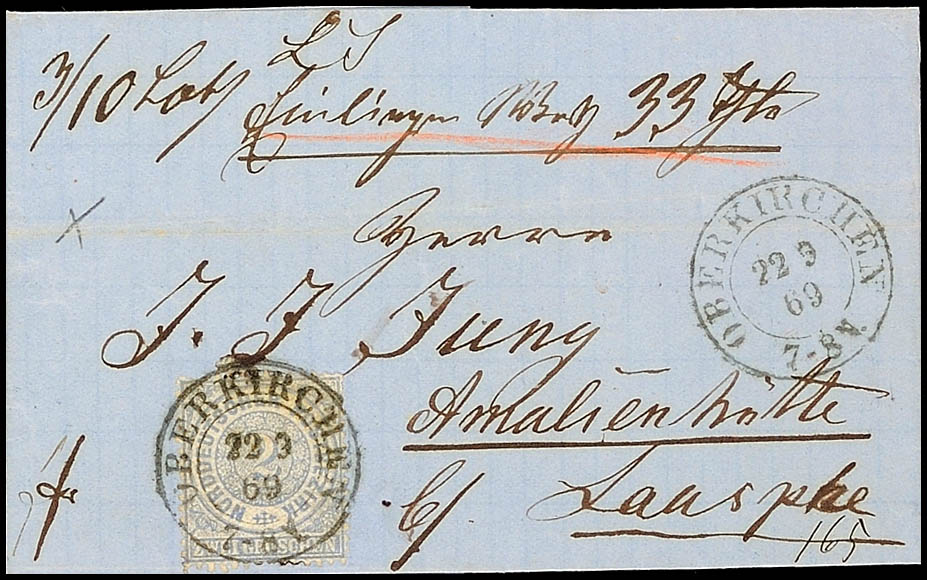 3/10 Loth
33 Thlr
Herrn
J. J. Jung
Amalienhütte
b/ Laasphe
fr
165
OBERKIRCHEN
22 9
69
7-8 N
OBERKIRCHEN
22 9
69
2
NORDDEUTSCHER POSTBEZIRK
ZWEI GROSCHEN